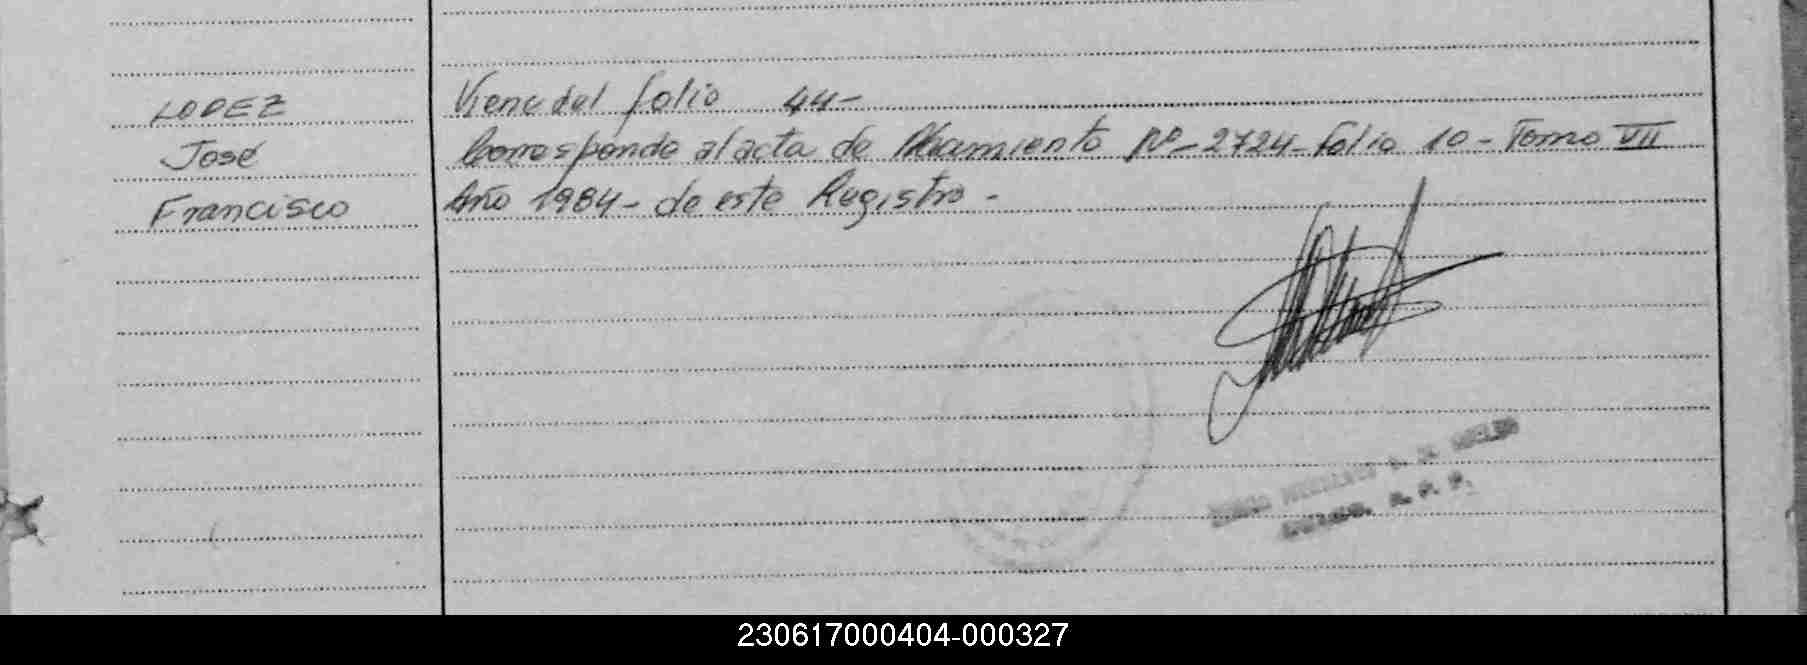 LOPEZ
José
Francisco
Viene del folio 44-
Corresponde al acta de Nacimiento Nº-2724-Folio 10-Tomo VII
Año 1984- de este Registro-
230617000404-000327